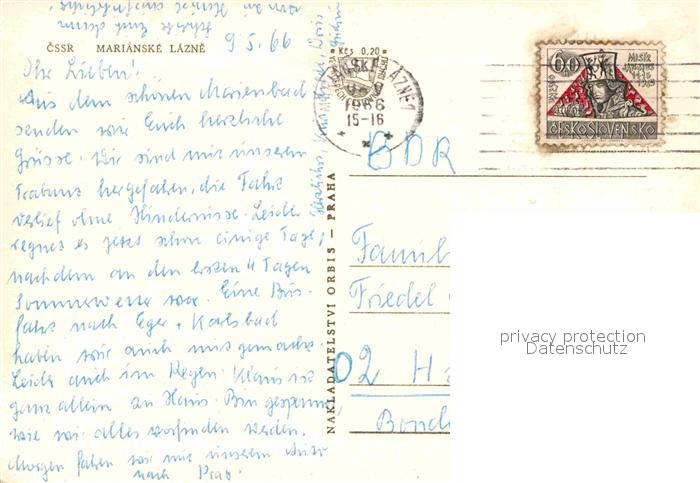 ČSSR MARIÁNSKÉ LÁZNĚ
9 5. 66
Ihr Lieben!
Aus dem schönen Marienbad
senden wir Euch herzliche
Grüsse. Wir sind mit unserem
Trabant hergefahren, die Fahrt
verlief ohne Hindernisse. Leider
regnet es jetzt schon einige Tage,
nachdem an den ersten 4 Tagen
Sommerwetter war. Eine Bus-
fahrt nach Eger + Karlsbad
haben wir auch mitgemacht
Leider auch im Regen. Klaus ist
ganz allein zu Haus. Bin gespannt,
wie wir alles vorfinden werden.
Morgen fahren wir mit unserem Auto
nach Prag.
Kčs 0,20
NAKLADATELSTVÍ ORBIS – PRAHA
1966
15-16
60
ČESKOSLOVENSKO
BDR
Famil
Friedel
02 H
privacy protection
Datenschutz